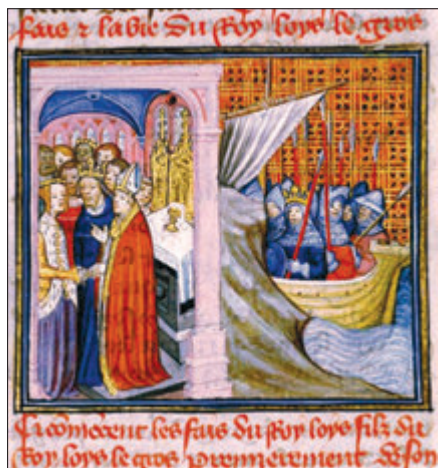 fais ⁊ la vie du Roy loys le gros
Cy cōmencent les fais du Roy loys filz du
Roy loys le gros premierement de son